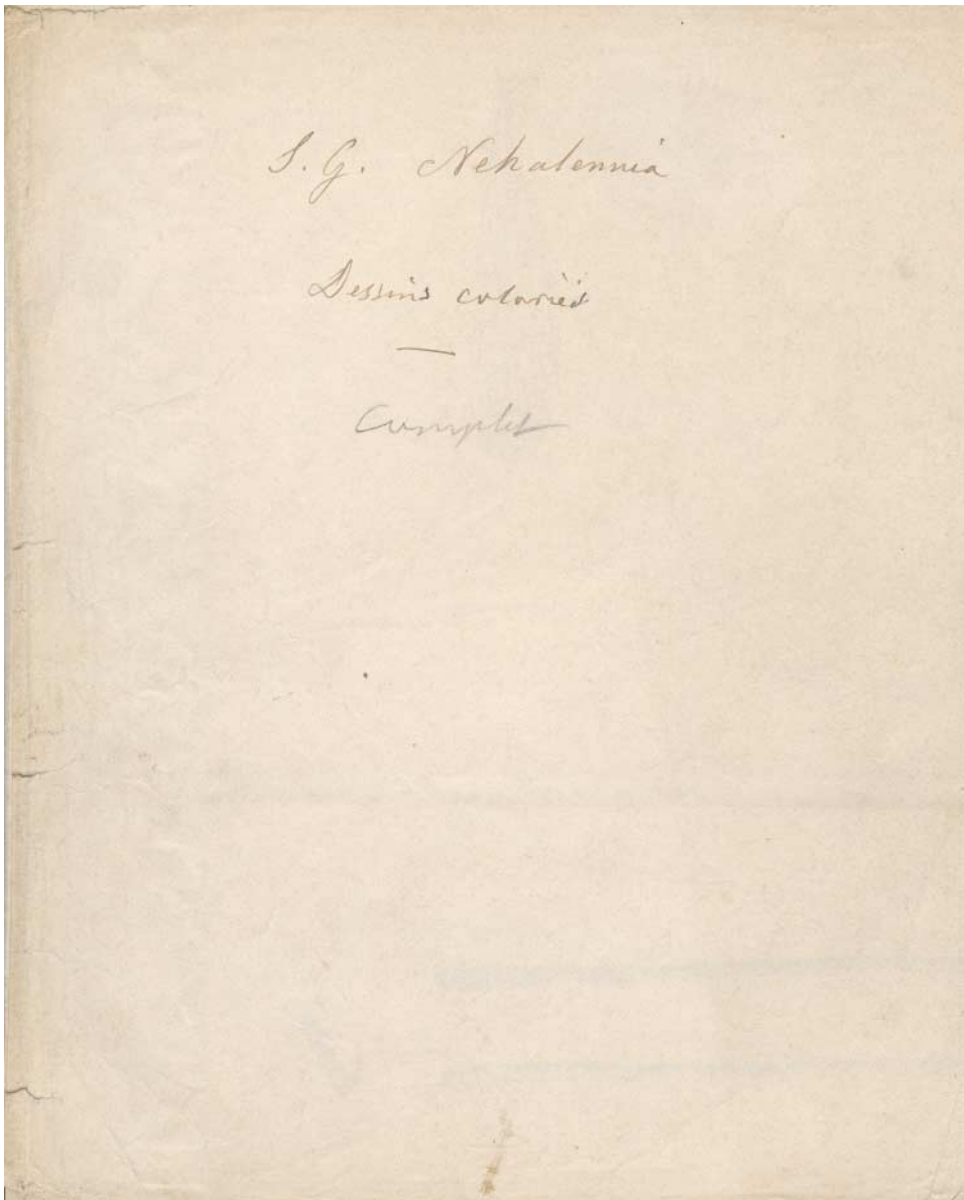 S. G. Nehalennia
Dessins coloriés
Complet